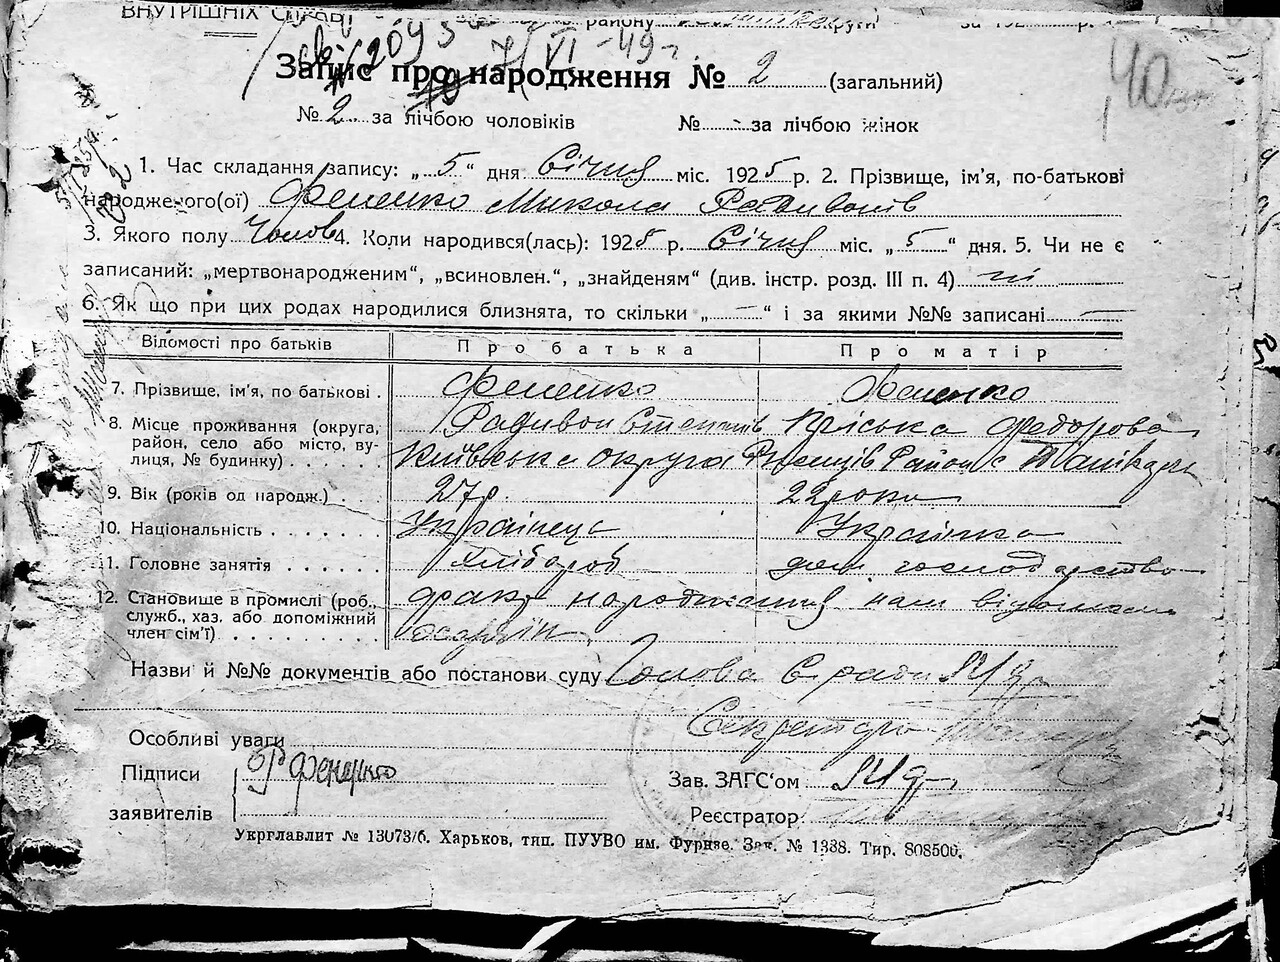 ВНУТРІШНІХ СПРАВ району округи за 192 р.
2093 7/VI-49 г.
Запис про народження № 2 (загальний)
40
№ 2 за лічбою чоловіків № - за лічбою жінок
1. Час складання запису: „ 5 “ дня Січня міс. 1925 р. 2. Прізвище, ім'я, по-батькові
народженого(ої) Фененко Микола Радивонів
3. Якого полу Чолов 4. Коли народився(лась): 1925 р. Січня міс. „ 5 “ дня. 5. Чи не є
записаний: „мертвонародженим“, „всиновлен.“, „знайденям“ (див. інстр. розд. III п. 4) ні
6. Як що при цих родах народилися близнята, то скільки „ — “ і за якими №№ записані —
Відомості про батьків Про батька Про матір
7. Прізвище, ім'я, по батькові . Фененко Фененко
8. Місце проживання (округа, Радивон Степанів Пріська Федорова
район, село або місто, ву-
лиця, № будинку) . . . . . Київська округа район с
9. Вік (років од народж.) . 27р. 22 роки
10. Національність . . . . . . . Українець Українка
11. Головне занятія . . . . . . Хлібороб дом. господарство
12. Становище в промислі (роб., факт народження нам відомий
служб., хаз. або допоміжний
член сім'ї) . . . . . . . . .
Назви й №№ документів або постанови суду Голова С/ради
Секретарь
Особливі уваги
Підписи Р Фененко Зав. ЗАГС'ом
заявителів Реєстратор
Укрглавлит № 13073/6. Харьков, тип. ПУУВО им. Фрунзе. Зак. № 1338. Тир. 808500.